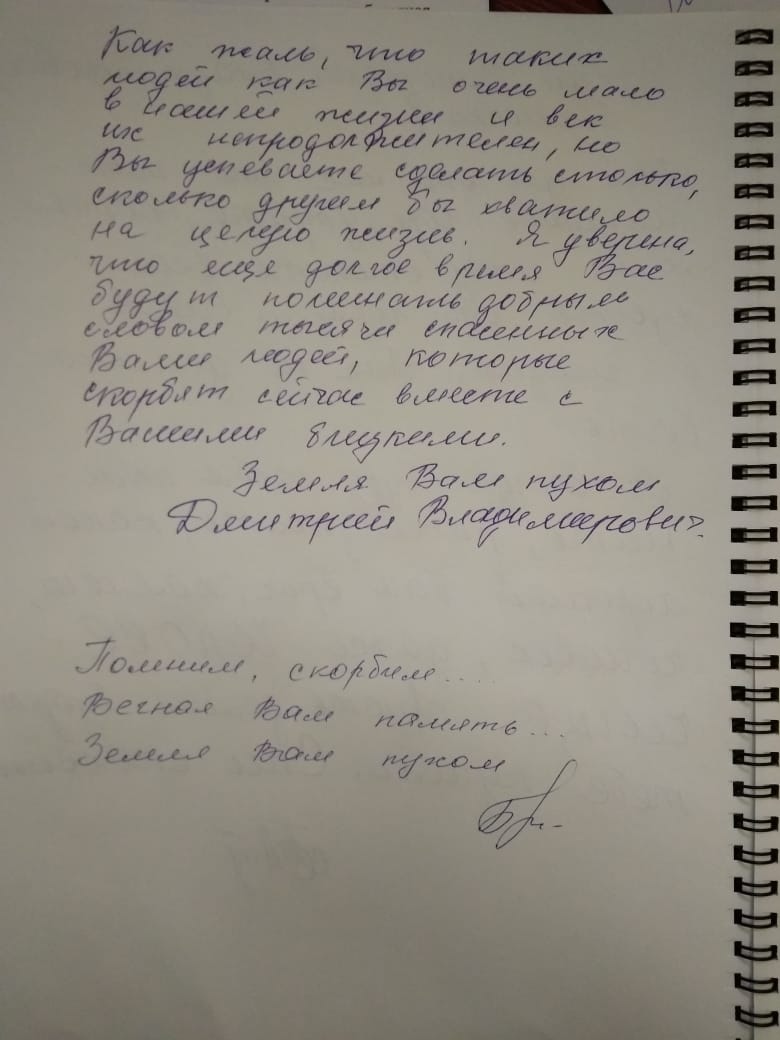 Как жаль, что таких
людей как Вы очень мало
в нашей жизни и век
их непродолжителен, но
Вы успеваете сделать столько,
сколько другим бы хватило
на целую жизнь. Я уверена,
что еще долгое время Вас
будут поминать добрым
словом тысячи спасенных
Вами людей, которые
скорбят сейчас вместе с
Вашими близкими.
Земля Вам пухом
Дмитрий Владимирович.
Помним, скорбим....
Вечная Вам память...
Земля Вам пухом